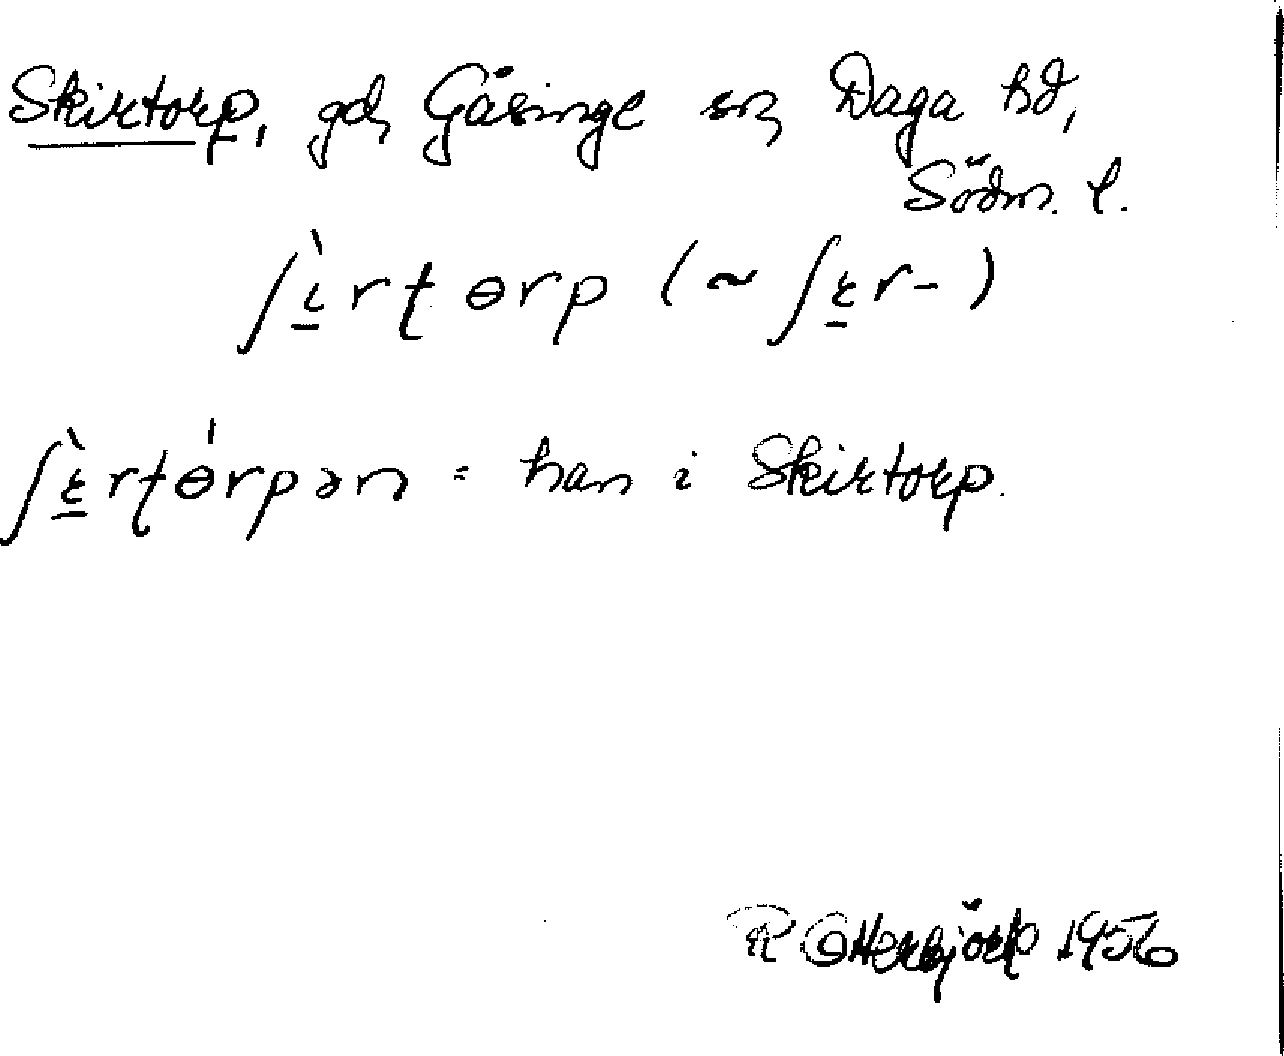 Skirtorp, gd, Gåsinge sn, Daga hd,
Södm. l.
ʃì̠rt̢ɵrp (~ ʃɛ̠r-)
ʃɛ̠̀rt̢ɵ́rpən = han i Skirtorp.
R Otterbjörk 1956